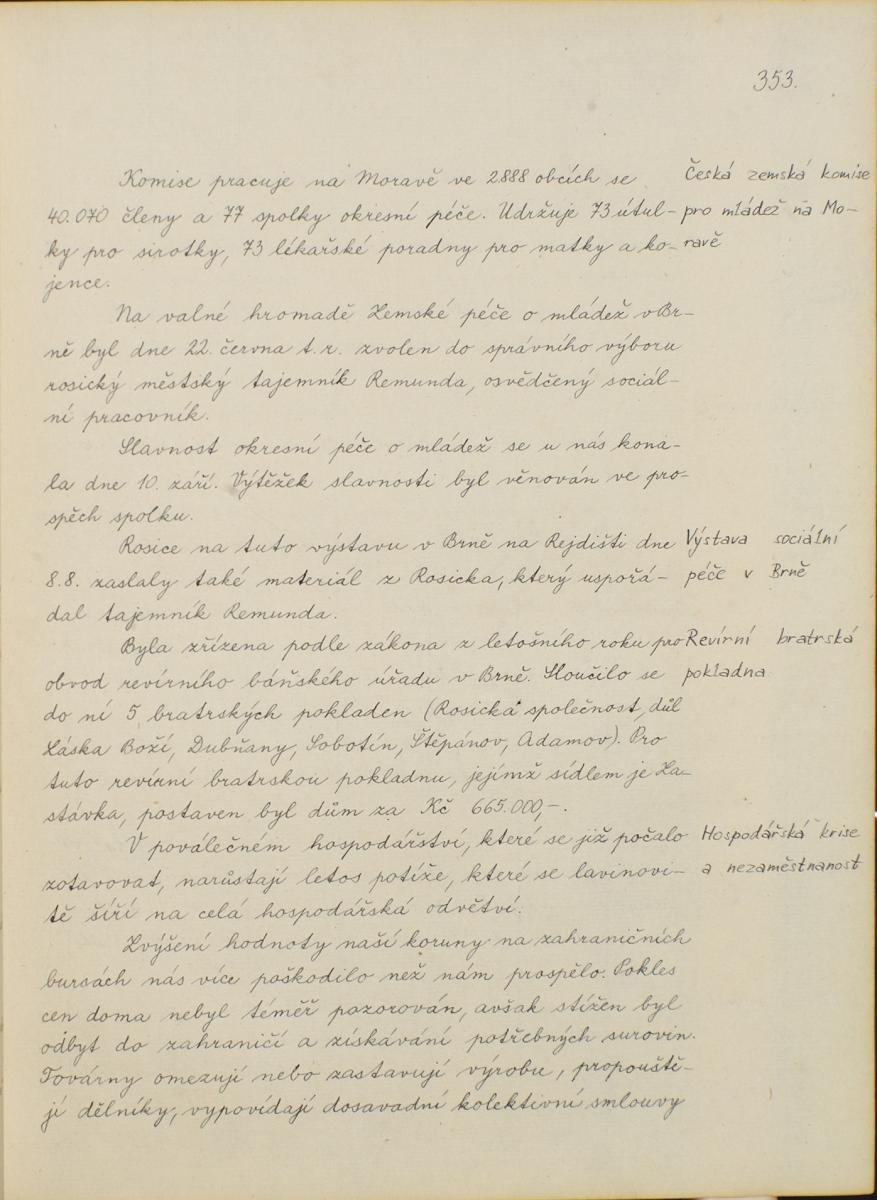 353.
Komise pracuje na Moravě ve 2888 obcích se
40.070 členy a 77 spolky okresní péče. Udržuje 73 útul-
ky pro sirotky, 73 lékařské poradny pro matky a ko-
jence.
Česká zemská komise
pro mládež na Mo-
ravě
Na valné hromadě Zemské péče o mládež v Br-
ně byl dne 22. června t.r. zvolen do správního výboru
rosický městský tajemník Remunda, osvědčený sociál-
ní pracovník.
Slavnost okresní péče o mládež se u nás kona-
la dne 10. září. Výtěžek slavnosti byl věnován ve pro-
spěch spolku.
Rosice na tuto výstavu v Brně na Rejdišti dne
8.8. zaslaly také materiál z Rosicka, který uspořá-
dal tajemník Remunda.
Výstava sociální
péče v Brně
Byla zřízena podle zákona z letošního roku pro
obvod revírního báňského úřadu v Brně. Sloučilo se
do ní 5 bratrských pokladen (Rosická společnost, důl
Láska Boží, Dubňany, Sobotín, Štěpánov, Adamov). Pro
tuto revírní bratrskou pokladnu, jejímž sídlem je Za-
stávka, postaven byl dům za Kč 665.000,-.
Revírní bratrská
pokladna
V poválečném hospodářství, které se již počalo
zotavovat, narůstají letos potíže, které se lavinovi-
tě šíří na celá hospodářská odvětví.
Hospodářská krise
a nezaměstnanost
Zvýšení hodnoty naší koruny na zahraničních
bursách nás více poškodilo než nám prospělo. Pokles
cen doma nebyl téměř pozorován, avšak stížen byl
odbyt do zahraničí a získávání potřebných surovin.
Továrny omezují nebo zastavují výrobu, propouště-
jí dělníky, vypovídají dosavadní kolektivní smlouvy